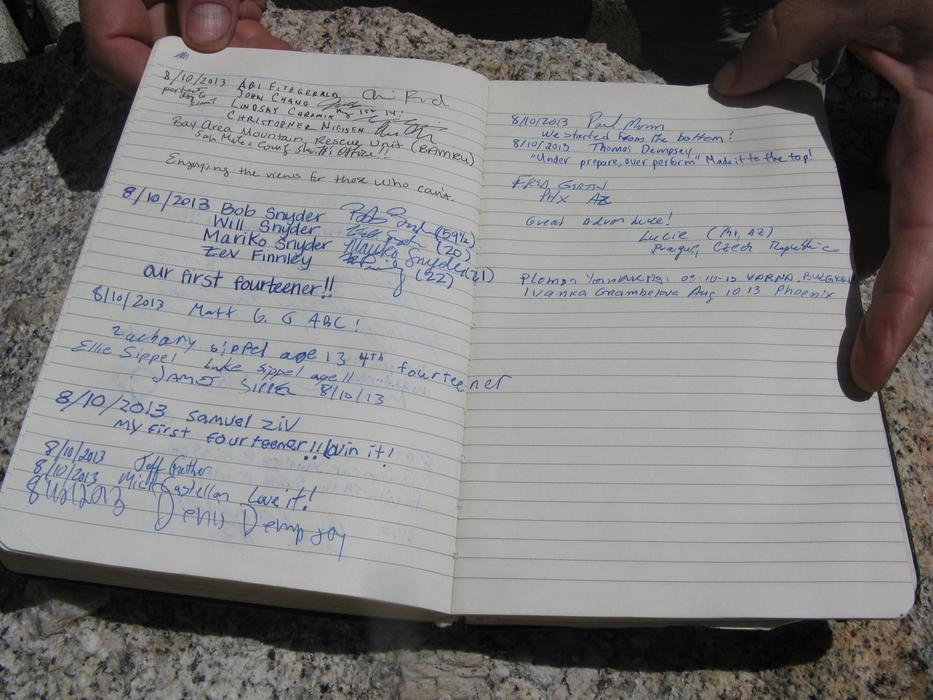 8/10/2013 ABI FITZGERALD
JOHN CHANG
LINDSAY
CHRISTOPHER NIELSEN
Bay Area Mountain Rescue Unit (BAMRU)
San Mateo County Sheriff's Office!!
Enjoying the views for those who can't.
8/10/2013 Bob Snyder (59½)
Will Snyder (20)
Mariko Snyder Mariko Snyder (21)
Zev Finnley (22)
our first fourteener!!
8/10/2013 Matt G. G ABC!
Zachary Sippel age 13 4th fourteener
Ellie Sippel Luke Sippel age 11
JAMES SIPPEL 8/10/13
8/10/2013 Samuel Ziv
My first fourteener!! lovin it!
8/10/2013 Jeff
8/10/2013 Mick Castellan Love it!
8/10/2013 Denis Dempsey
8/10/2013 Paul
We started from the bottom!
8/10/2013 Thomas Dempsey
"Under prepare, over perform" Made it to the top!
FRED
PHX AZ
Great adventure!
Lucie (PHX, AZ)
Prague, Czech Republic
Plamen VARNA, BULGARIA
Ivanka Grambelova Aug 10 13 Phoenix